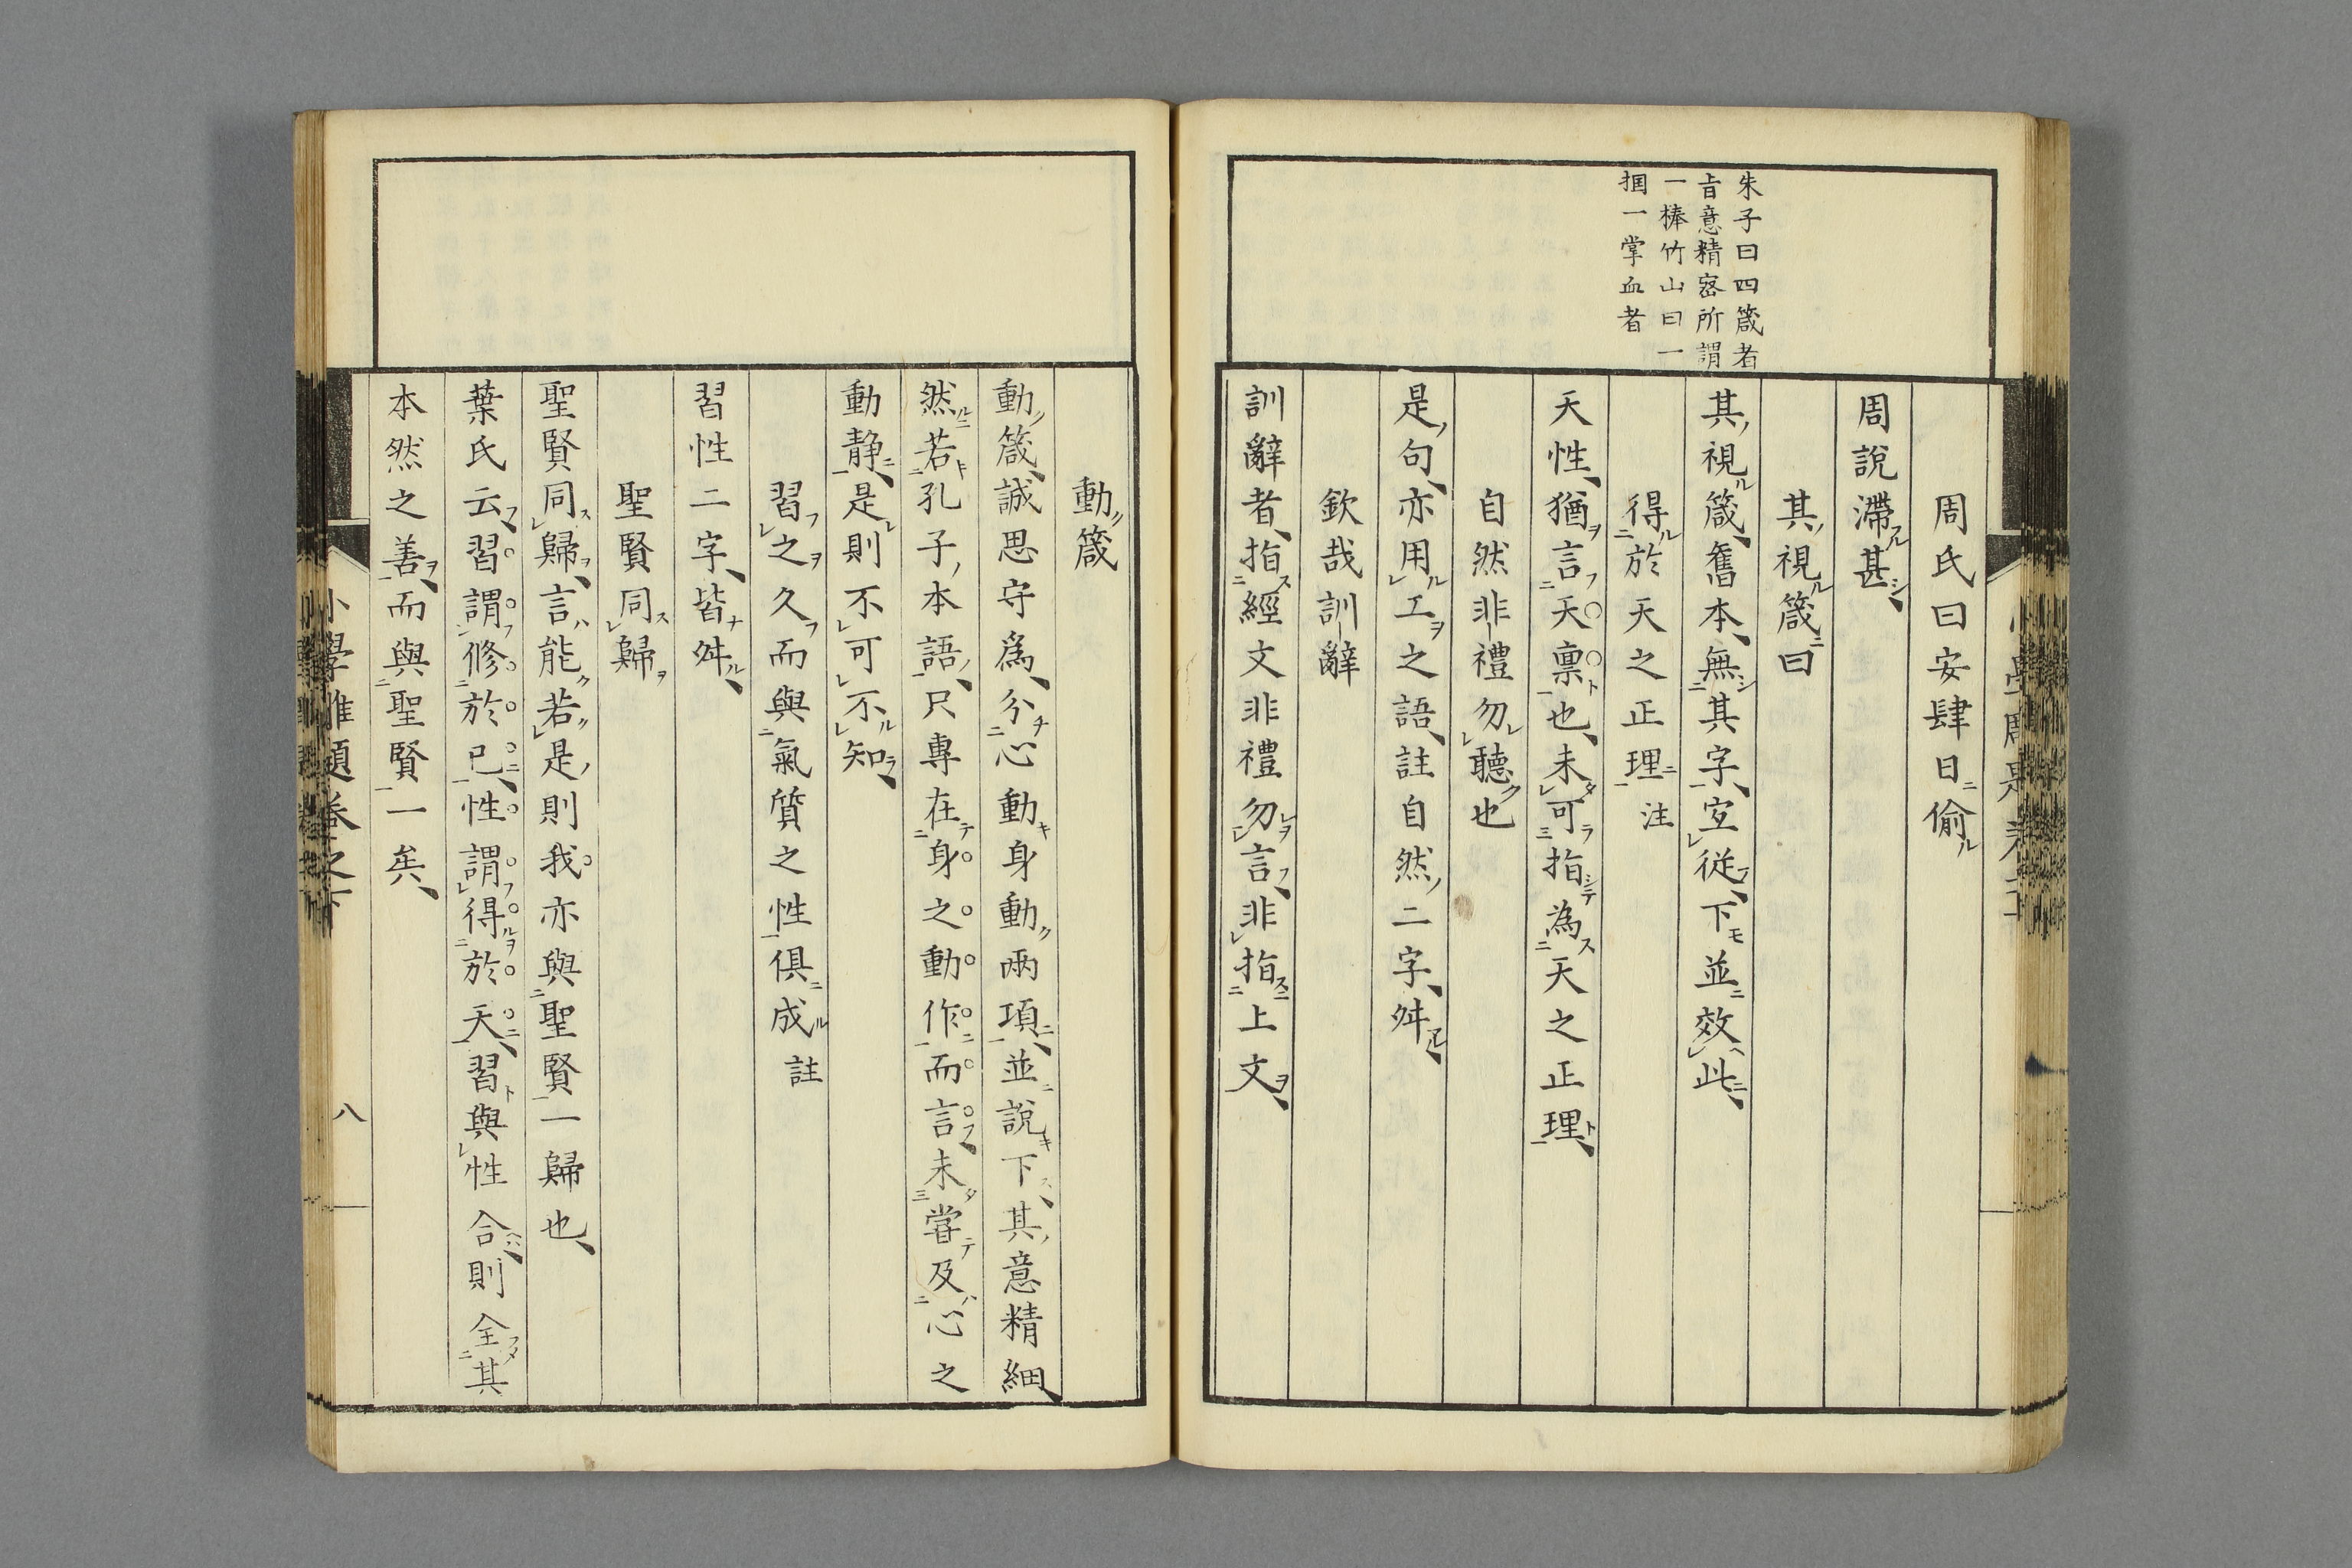 朱子曰四箴者
旨意精密所謂
一棒竹山曰一
掴一掌血者
周氏曰安肆日偷
周說滯甚
其視箴曰
其視箴舊本無其字宜從下並效此
得於天之正理注
天性猶言天稟也未可指為天之正理
自然非禮勿聽也
是句亦用工之語註自然二字舛
欽哉訓辭
訓辭者指經文非禮勿言非指上文
動箴
動箴誠思守爲分心動身動兩項並說下其意精細
然若孔子本語只專在身之動作而言未嘗及心之
動静是則不可不知
習之久而與氣質之性俱成註
習性二字皆舛
聖賢同歸
聖賢同歸言能若是則我亦與聖賢一歸也
葉氏云習謂修於已性謂得於天習與性合則全其
本然之善而與聖賢一矣
八